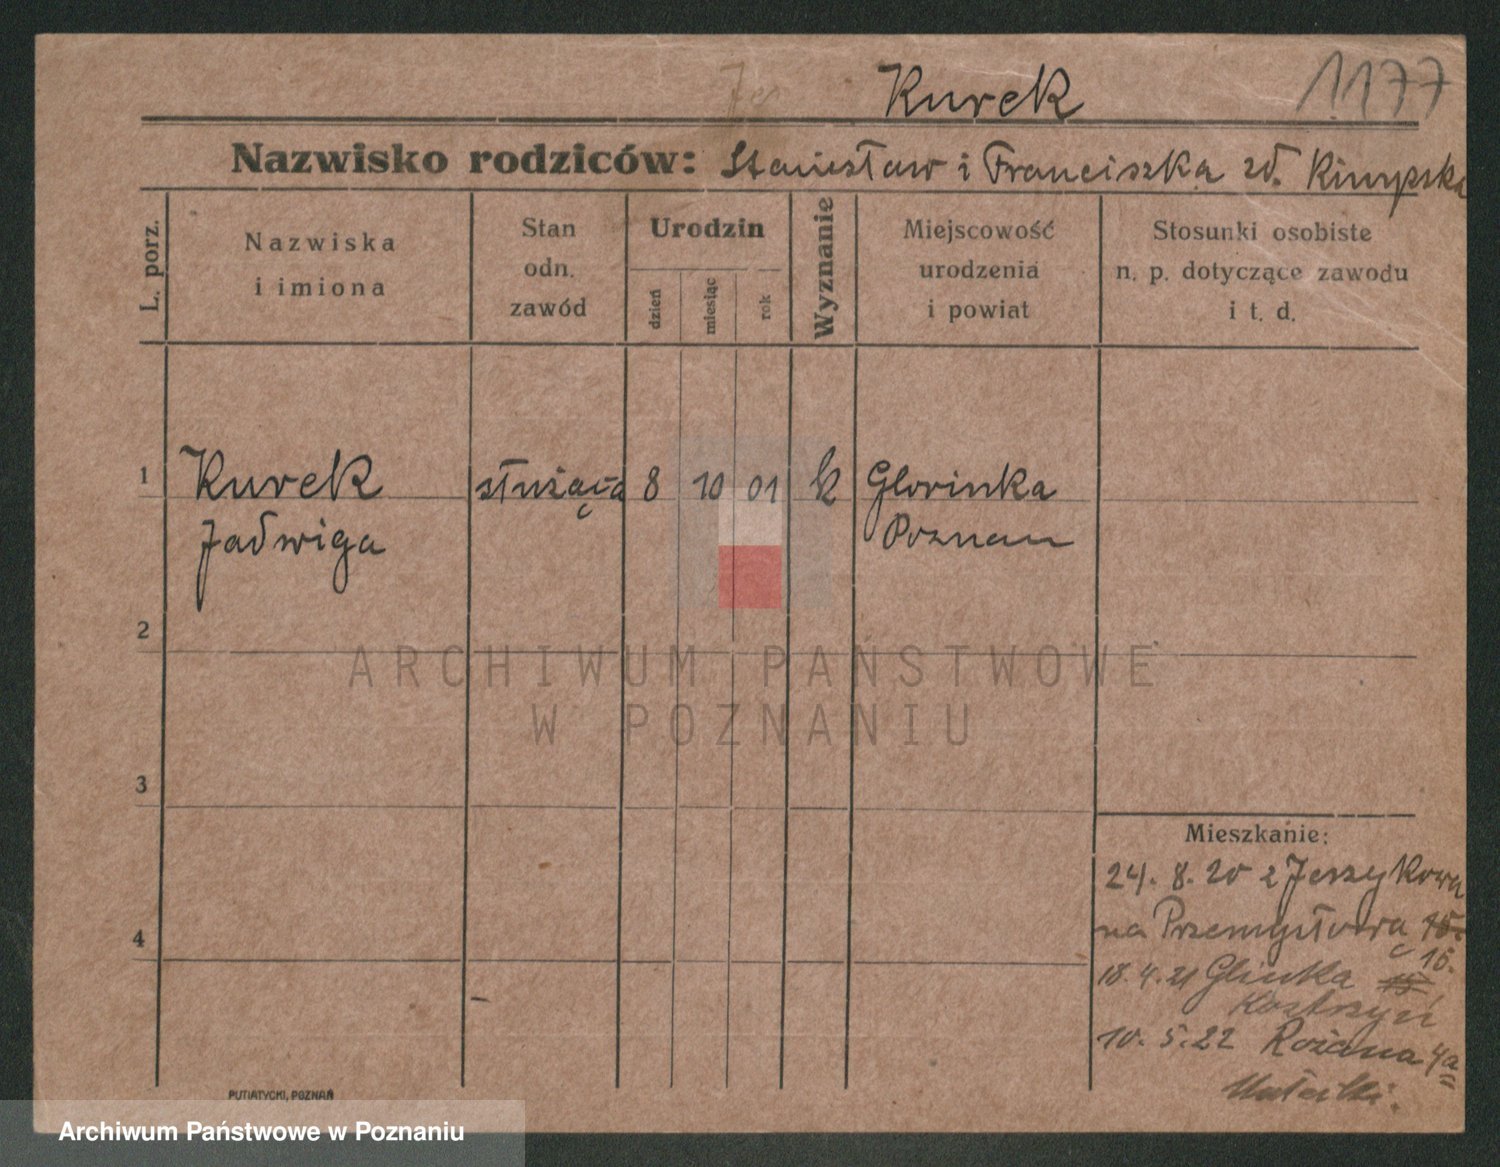 Kurek 1177
Nazwisko rodziców: Stanisław i Franciszka zd.
L. porz.
Nazwiska
i imiona
Stan
odn.
zawód
Urodzin
dzień
miesiąc
rok
Wyznanie
Miejscowość
urodzenia
i powiat
Stosunki osobiste
n. p. dotyczące zawodu
i t. d.
1 Kurek służąca 8 10 01 k Glorinka
Jadwiga Poznan
2
ARCHIWUM PAŃSTWOWE
W POZNANIU
3
Mieszkanie:
24. 8. 20 z Jerzykowa
na Przemysłową 15.
15.
4
18. 4. 21 Glinka
Kostrzyń
10. 5. 22 Różana 4a
PUTIATYCKI, POZNAŃ
Archiwum Państwowe w Poznaniu